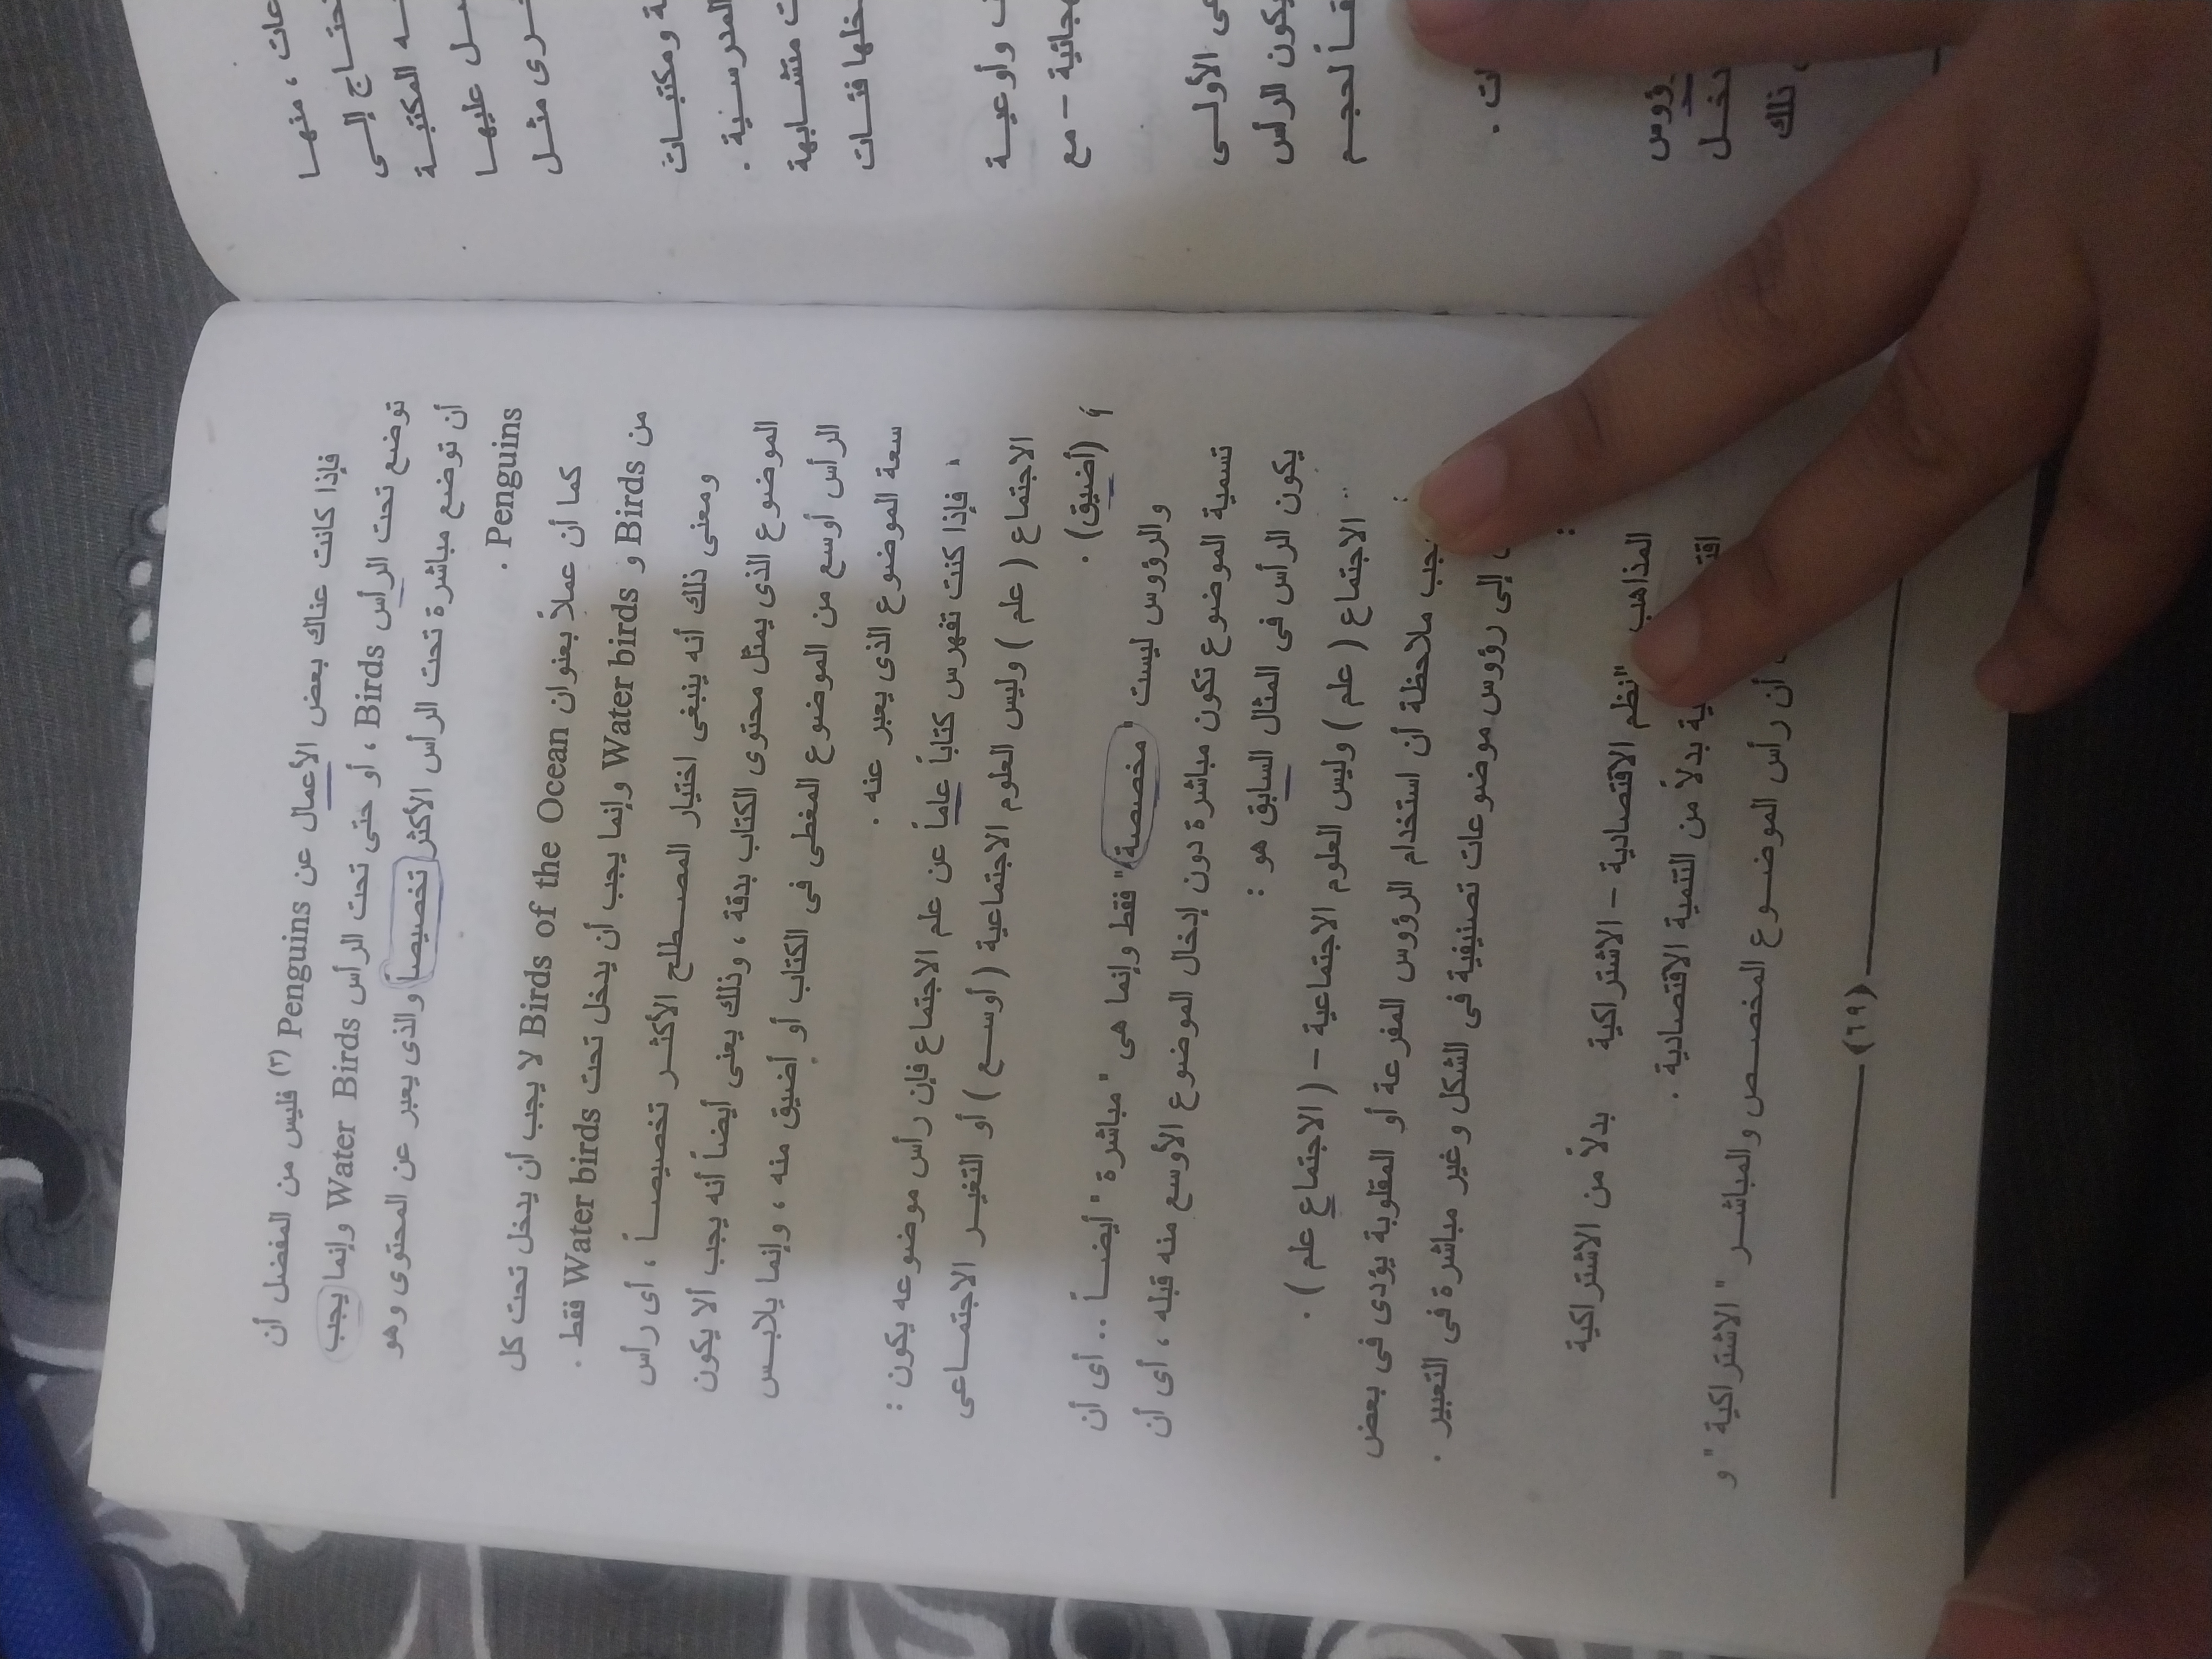 فإذا كانت عناك بعض الأعمال عن Penguins (٣) فليس من المفضل أن
توضع تحت الرأس Birds ، أو حتى تحت الرأس Water Birds وإنما يجب
أن توضع مباشرة تحت الرأس الأكثر تخصيصاً والذى يعبر عن المحتوى وهو
Penguins .
كما أن عملاً بعنوان Birds of the Ocean لا يجب أن يدخل تحت كل
من Birds و Water birds وإنما يجب أن يدخل تحت Water birds فقط .
ومعنى ذلك أنه ينبغى اختيار المصطلح الأكثر تخصيصاً ، أى رأس
الموضوع الذى يمثل محتوى الكتاب بدقة ، وذلك يعنى أيضاً أنه يجب ألا يكون
الرأس أوسع من الموضوع المغطى فى الكتاب أو أضيق منه ، وإنما يلابس
سعة الموضوع الذى يعبر عنه .
فإذا كنت تفهرس كتاباً عاماً عن علم الاجتماع فإن رأس موضوعه يكون :
الاجتماع ( علم ) وليس العلوم الاجتماعية ( أوسع ) أو التغير الاجتماعى
(أضيق) .
والرؤوس ليست " مخصصة " فقط وإنما هى " مباشرة " أيضاً .. أى أن
تسمية الموضوع تكون مباشرة دون إدخال الموضوع الأوسع منه قبله ، أى أن
يكون الرأس فى المثال السابق هو :
الاجتماع ( علم ) وليس العلوم الاجتماعية – ( الاجتماع علم ) .
ملاحظة أن استخدام الرؤوس المفرعة أو المقلوبة يؤدى فى بعض
إلى رؤوس موضوعات تصنيفية فى الشكل وغير مباشرة فى التعبير .
:
المذاهب النظم الاقتصادية – الاشتراكية بدلاً من الاشتراكية
بدلاً من التنمية الاقتصادية .
أن رأس الموضوع المخصص والمباشر " الاشتراكية " و
(٦٩)
، منها
إلى
المكتبة
عليها
مثل
ومكتبات
المدرسية .
متشابهة
فئات
وأوعية
– مع
الأولى
يكون الرأس
لحجم
ذلك